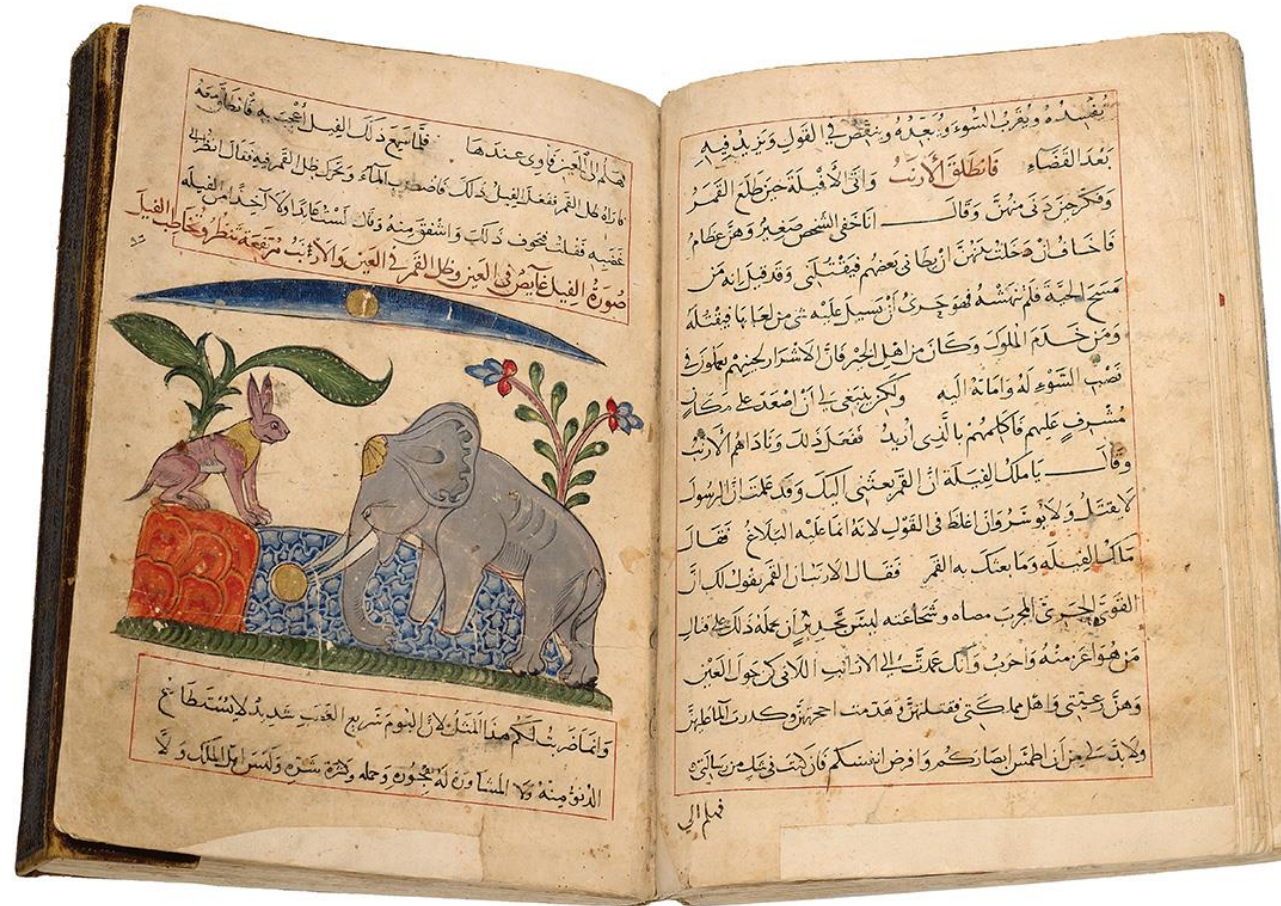 يفسده ويقرب السوء ويبعده وينقص في القول ويزيد فيه
بعد القضاء فانطلق الأرنب واتى الافيلة حين طلع القمر
وفكر حين دنى منهن وقال انا خفى الشخص صغير وهن عظام
فاخاف ان دخلت بينهن ان يطانى بعضهم فيقتلنى وقد قيل انه من
مسح الحية فلم تنهشه فهو حرى أن يسيل عليه شى من لعابها فيقتله
ومن خدم الملوك وكان من اهل الخير فان الاشرار يعملون فى
نصب السوء له وامانة اليه ولكن ينبغى لى ان اصعد على مكان
مشرف عليهم فاكلمهم بالذى اريد ففعل ذلك وناداهم الارنب
وقال يا ملك الفيلة ان القمر بعثنى اليك وقد علمت ان الرسول
لا يقتل ولا يوسر وان اغلظ فى القول لانه انما عليه البلاغ فقال
ملك الفيله وما بعثك به القمر فقال الارنب ان القمر يقول لك ان
القوى الجرى المجرب وشجاعته ان يحمله ذلك على قتال
من هو اعز منه واحرب وأنك عمدت الى الارانب اللاتى كن حول العين
وهن رعيتى واهل مملكتى فقتلتهن وهدمت احجرتهن وكدرت
ولا بد لى من أن اطمس ابصاركم وافرض انفسكم فان كنت فى شك من رسالتى
فهلم الي
فهلم الى العين فاوى عندها فلما سمع ذلك الفيل اعجب به فانطلق معه
فاراه ظل القمر ففعل الفيل ذلك فاضطرب المآء وتحرك ظل القمر فيه فقال انظر الى
غضبه فقلت فخوف ذلك واشفق منه وقال لست عايدا ولا آخذ من الفيله
صورة الفيل غايص فى العين وظل القمر فى العين والارنب مرتفعة تنظر وتخاطب الفيل
وانما ضربت لكم هذا المثل لان البوم سريع الغضب شديد لا يستطاع
الدنو منه ولا له وكثرة شره وليس اهل الملك ولا